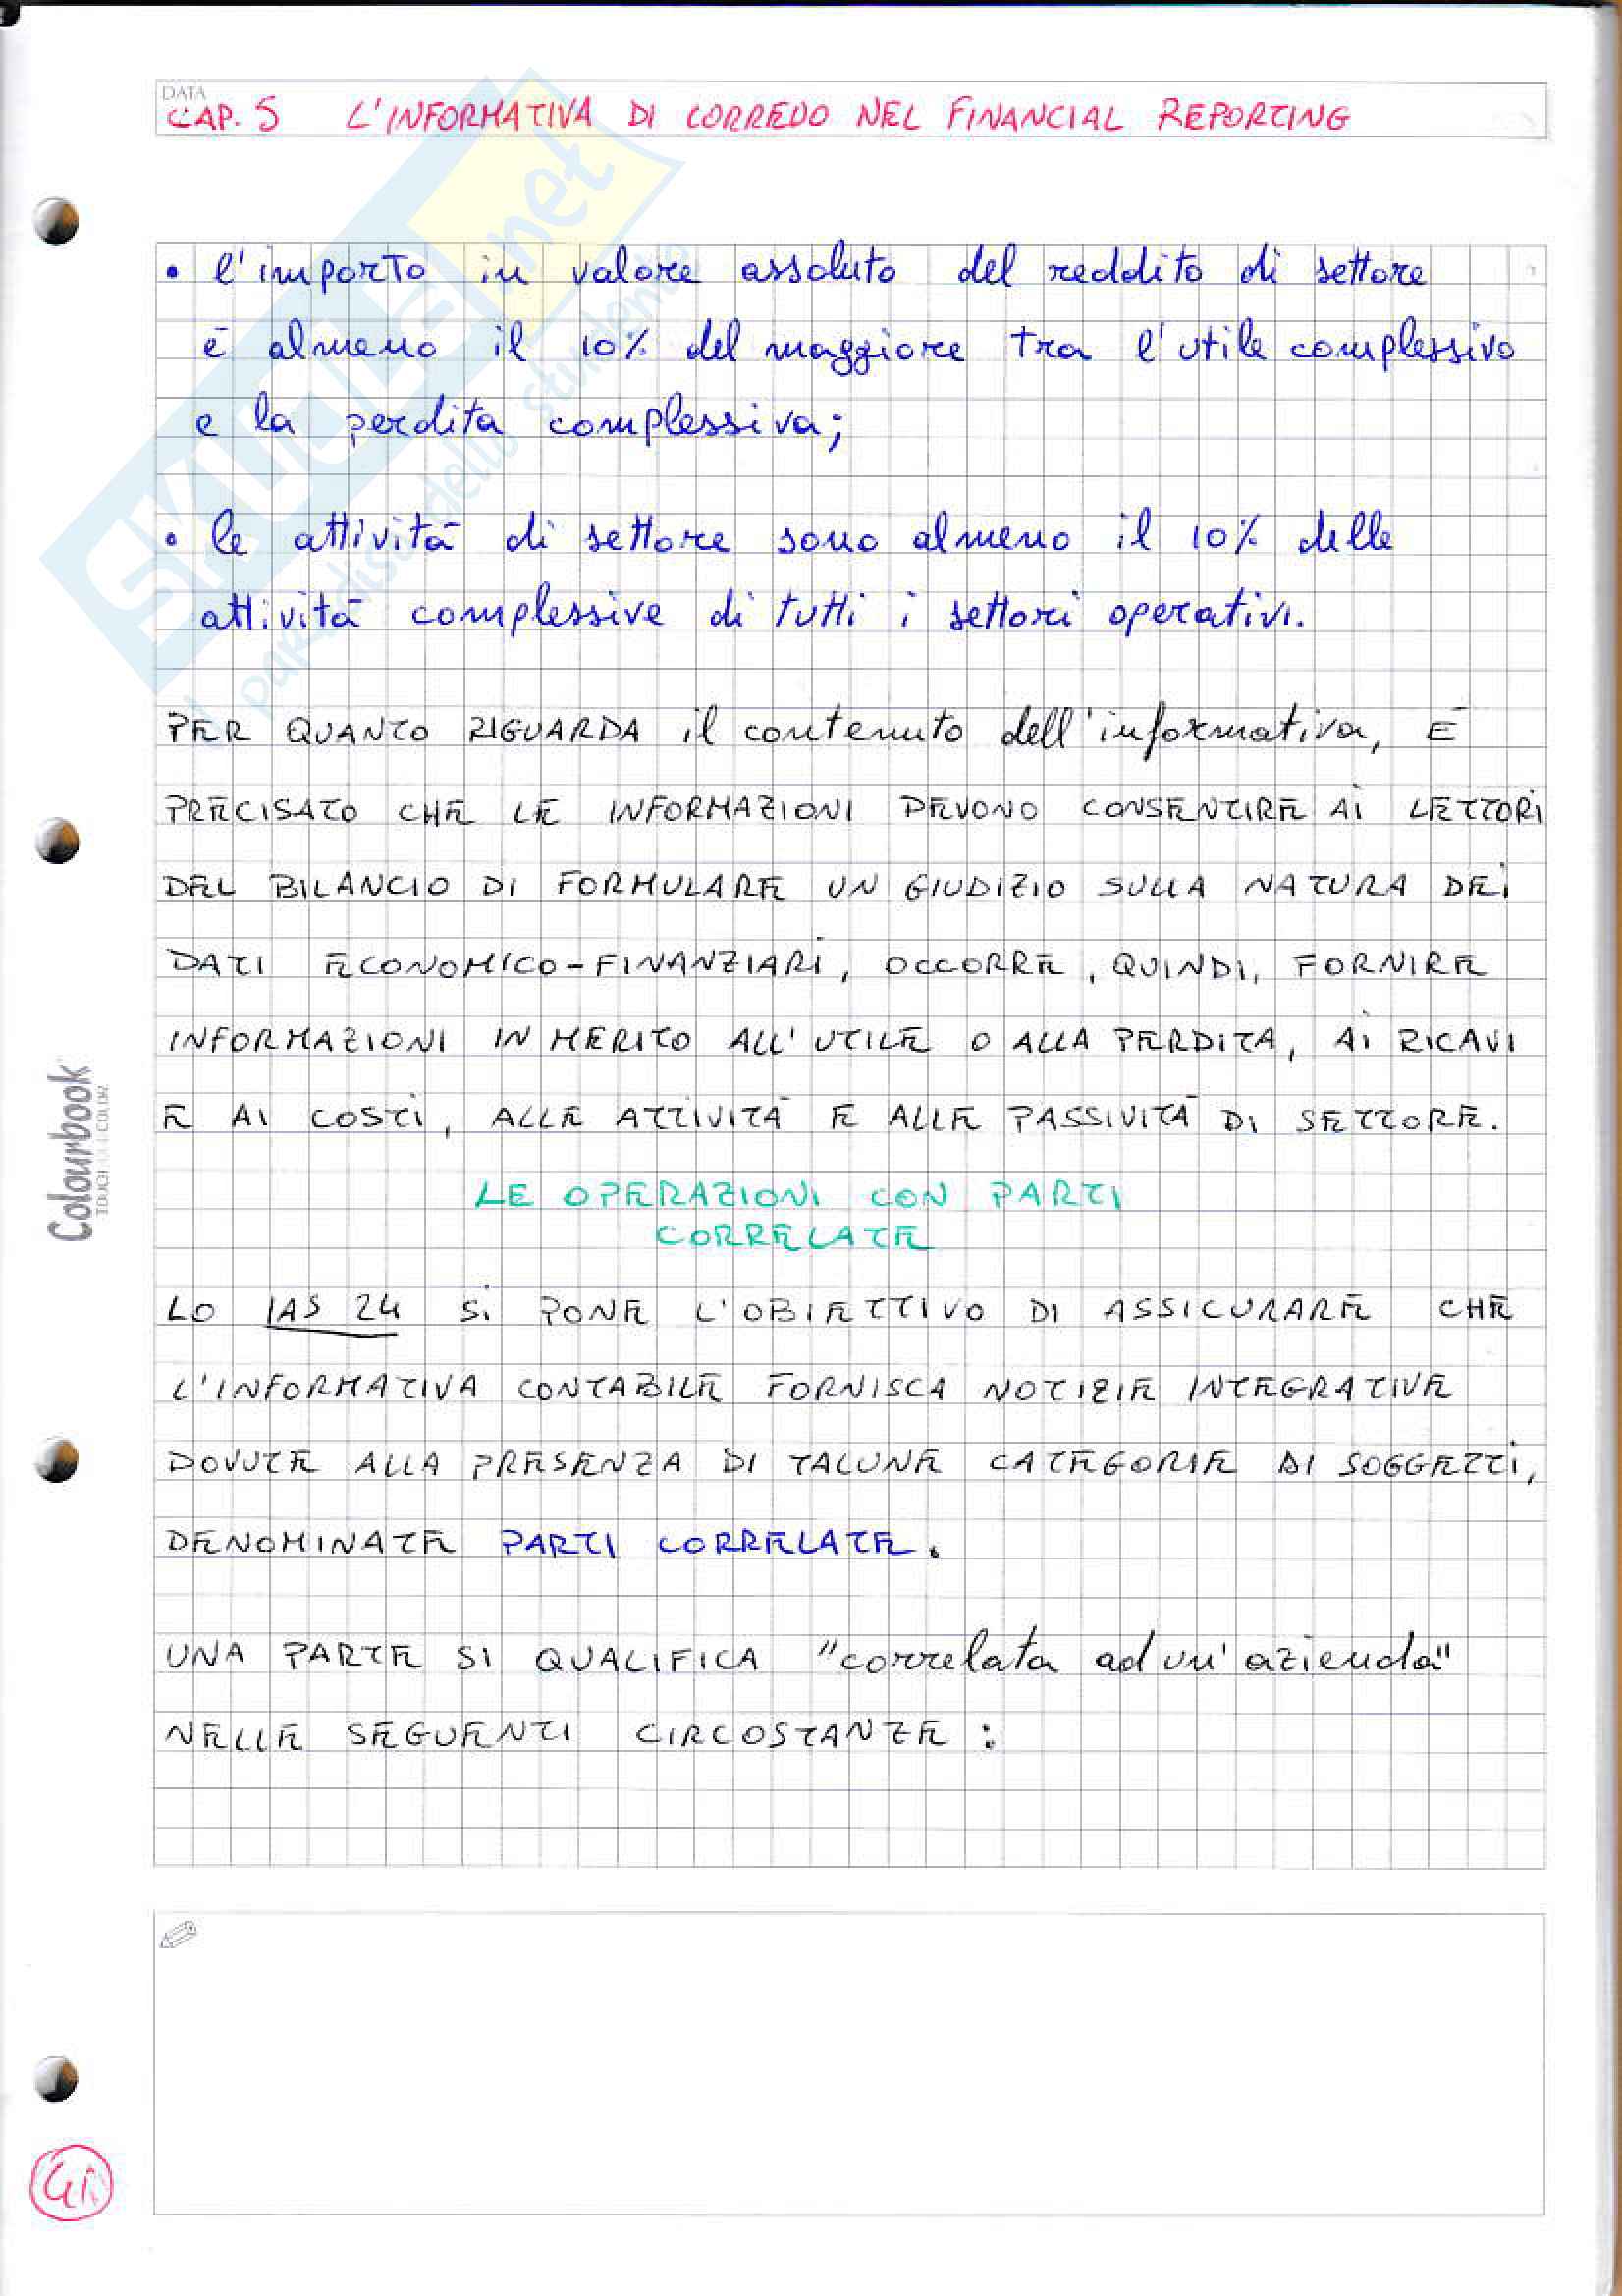 DATA
CAP. 5 L'INFORMATIVA DI CORREDO NEL FINANCIAL REPORTING
• l'importo in valore assoluto del reddito di settore
è almeno il 10% del maggiore tra l'utile complessivo
e la perdita complessiva;
• le attività di settore sono almeno il 10% delle
attività complessive di tutti i settori operativi.
PER QUANTO RIGUARDA il contenuto dell'informativa, È
PRECISATO CHE LE INFORMAZIONI DEVONO CONSENTIRE AI LETTORI
DEL BILANCIO DI FORMULARE UN GIUDIZIO SULLA NATURA DEI
DATI ECONOMICO-FINANZIARI, OCCORRE, QUINDI, FORNIRE
INFORMAZIONI IN MERITO ALL'UTILE O ALLA PERDITA, AI RICAVI
E AI COSTI, ALLE ATTIVITÀ E ALLE PASSIVITÀ DI SETTORE.
LE OPERAZIONI CON PARTI
CORRELATE
LO IAS 24 SI PONE L'OBIETTIVO DI ASSICURARE CHE
L'INFORMATIVA CONTABILE FORNISCA NOTIZIE INTEGRATIVE
DOVUTE ALLA PRESENZA DI TALUNE CATEGORIE DI SOGGETTI,
DENOMINATE PARTI CORRELATE.
UNA PARTE SI QUALIFICA "correlata ad un'azienda"
NELLE SEGUENTI CIRCOSTANZE:
Colourbook
41
SKUOLA.net
il paradiso dello studente